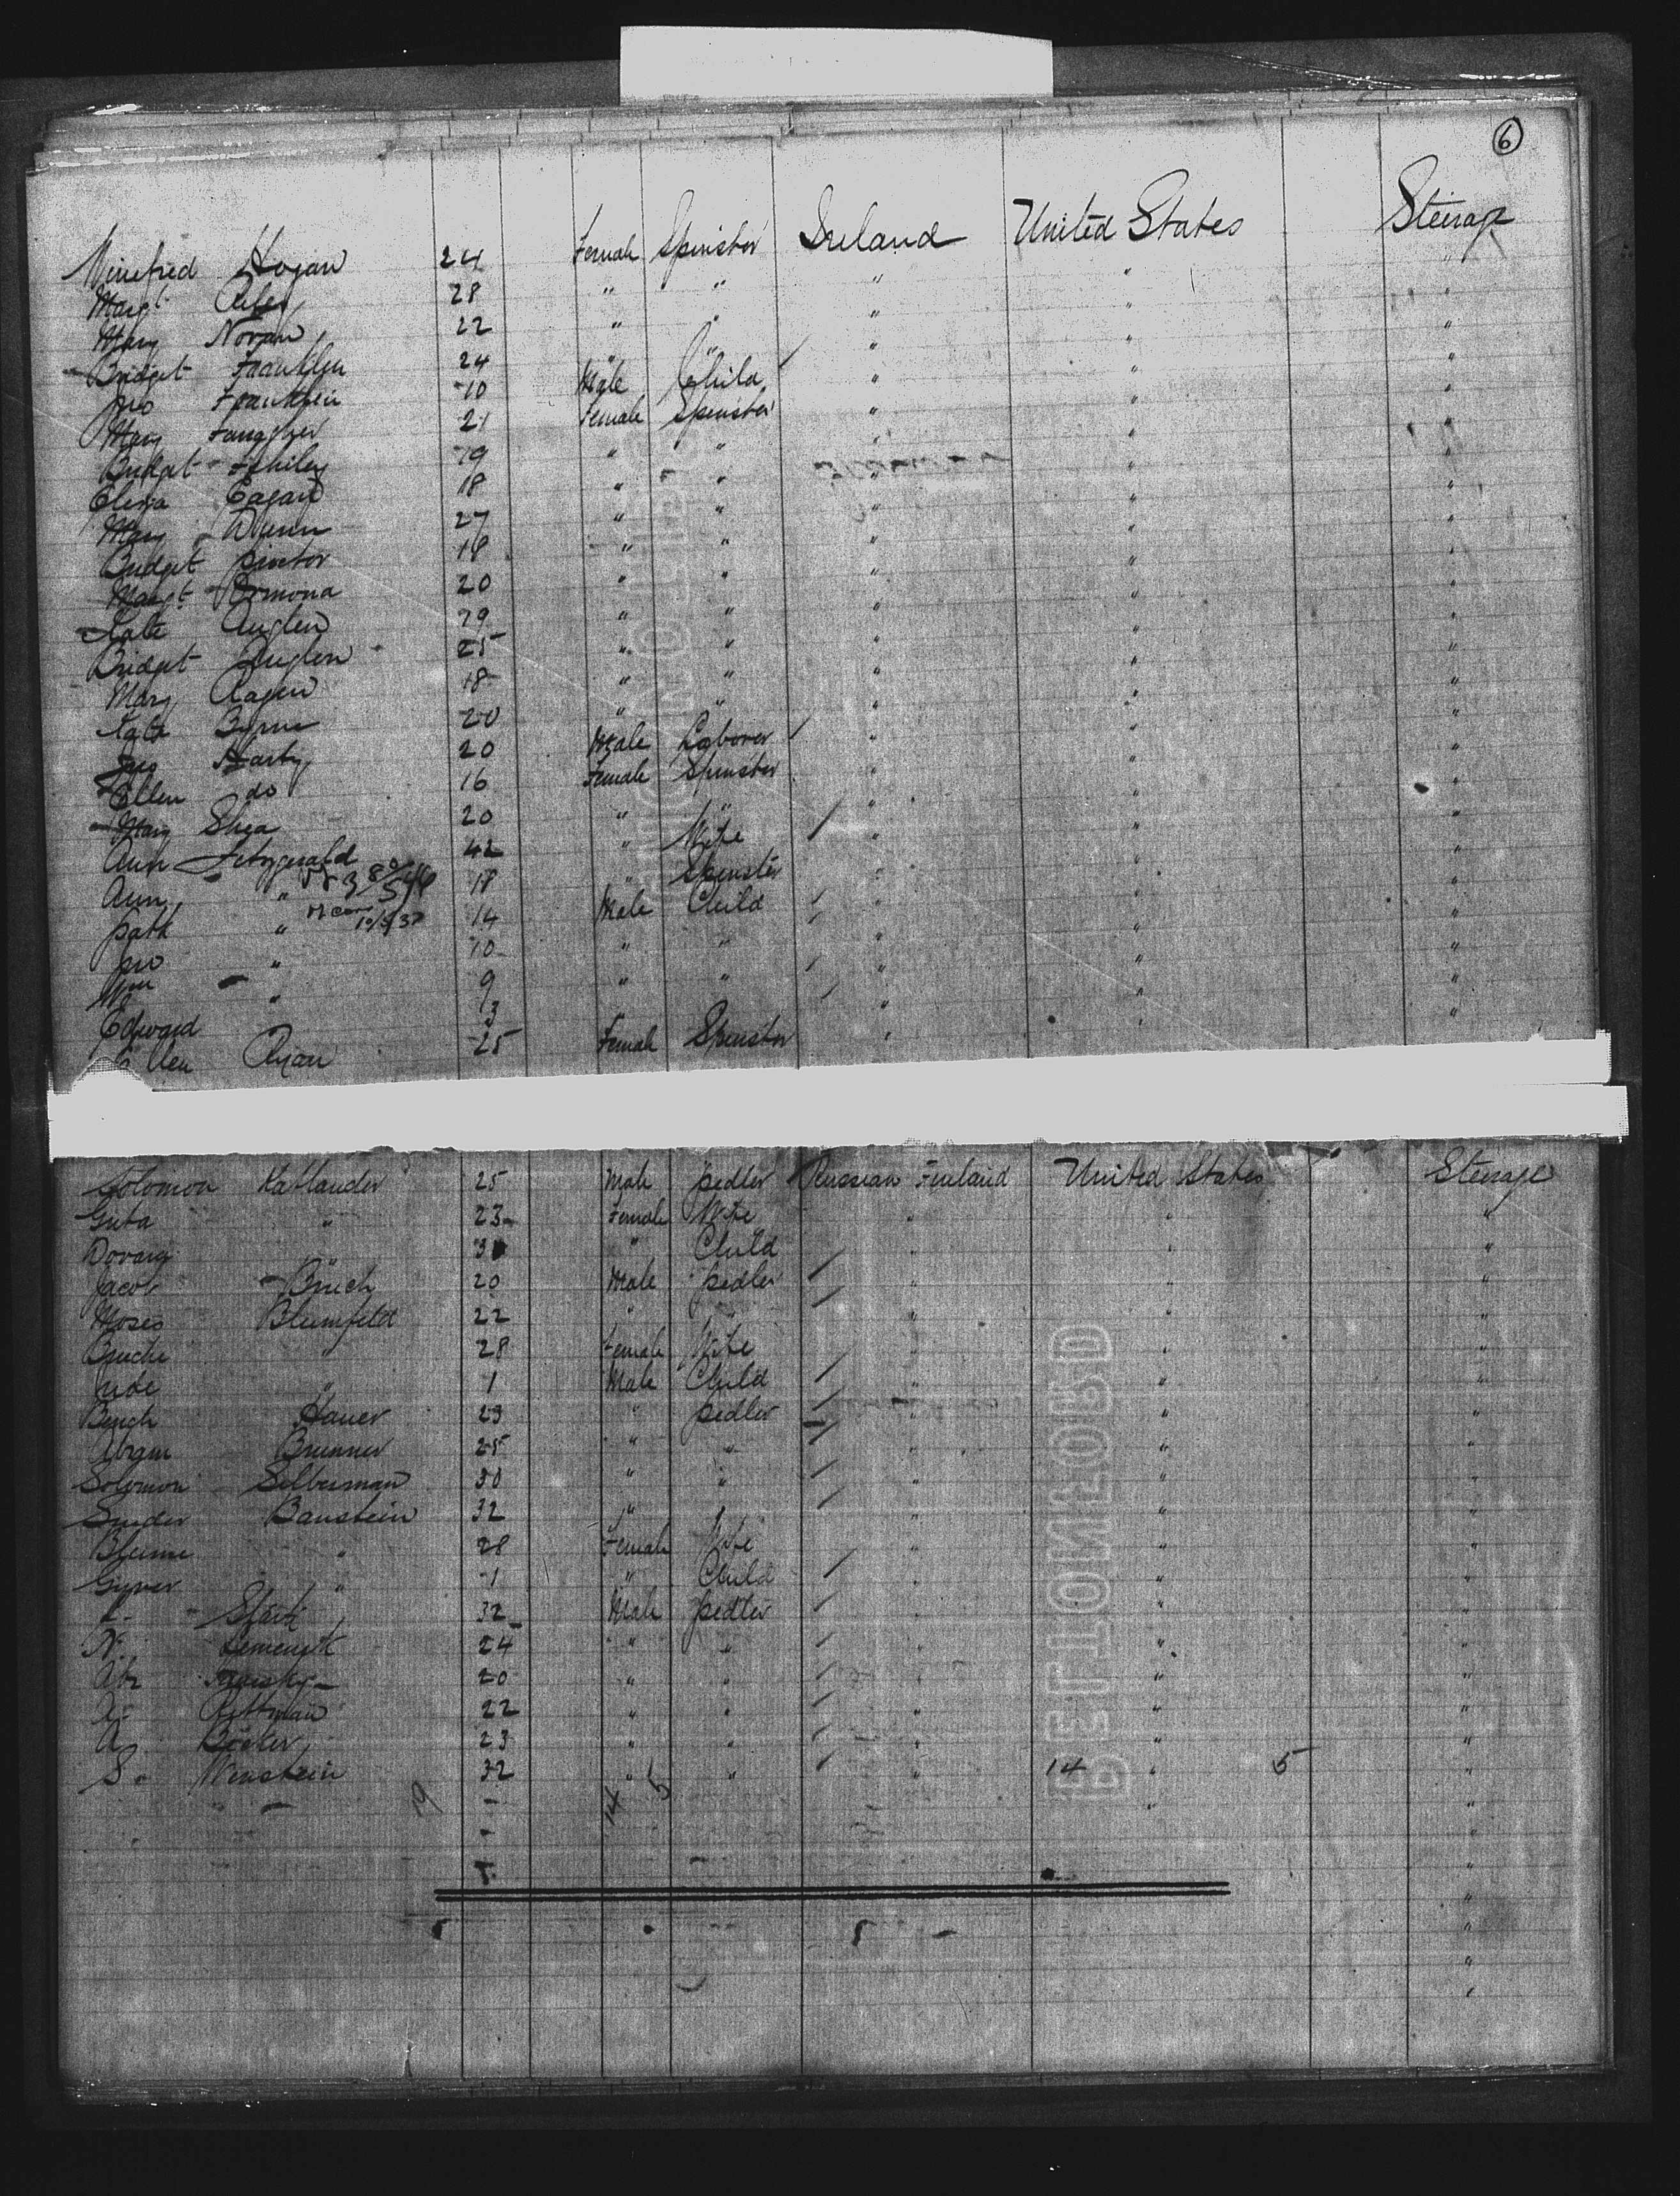 6
Winefred Hogan 24 Female Spinster Ireland United States Steerage
Margt. Riley 28 " " " " "
Mary Noran 22 " " " " "
Bridget Franklin 24 " " " " "
Jno Franklin 10 Male Child " " "
Mary 21 Female Spinster " " "
Bridget 19 " " " " "
Eliza Eagan 18 " " " " "
Mary Dunn 27 " " " " "
Bridget 18 " " " " "
Margt. 20 " " " " "
Kate Anglen 29 " " " " "
Bridget Anglen 25 " " " " "
Mary Ragen 18 " " " " "
Kate Byrne 20 " " " " "
Jno Harty 20 Male Laborer " " "
Ellen do 16 Female Spinster " " "
Mary Shea 20 " " " " "
Ann Fitzgerald 42 " Wife " " "
Ann " 18 " Spinster " " "
Patk " 14 Male Child " " "
Jno " 10 " " " " "
Wm " 9 " " " " "
Edward 3
Ellen Ryan 25 Female Spinster "
Solomon Katlander 25 Male pedler Russian Finland United States Steerage
Guta " 23 Female Wife " " "
" 3 " Child " " "
Jacob Bruch 20 Male pedler " " "
Moses Blumfeld 22 " " " " "
Bruche " 28 Female Wife " " "
Jude " 1 Male Child " " "
Hauer 23 " pedler " " "
Abram Brunner 25 " " " " "
Solomon Silberman 30 " " " " "
Banstein 32 " " " " "
Blume " 28 Female Wife " " "
" 1 " Child " " "
32 Male pedler " " "
N. 24 " " " " "
20 " " " " "
A. 22 " " " " "
A 23 " " " " "
S. Winstein 32 " " " 14 " 5 "
19 14 5